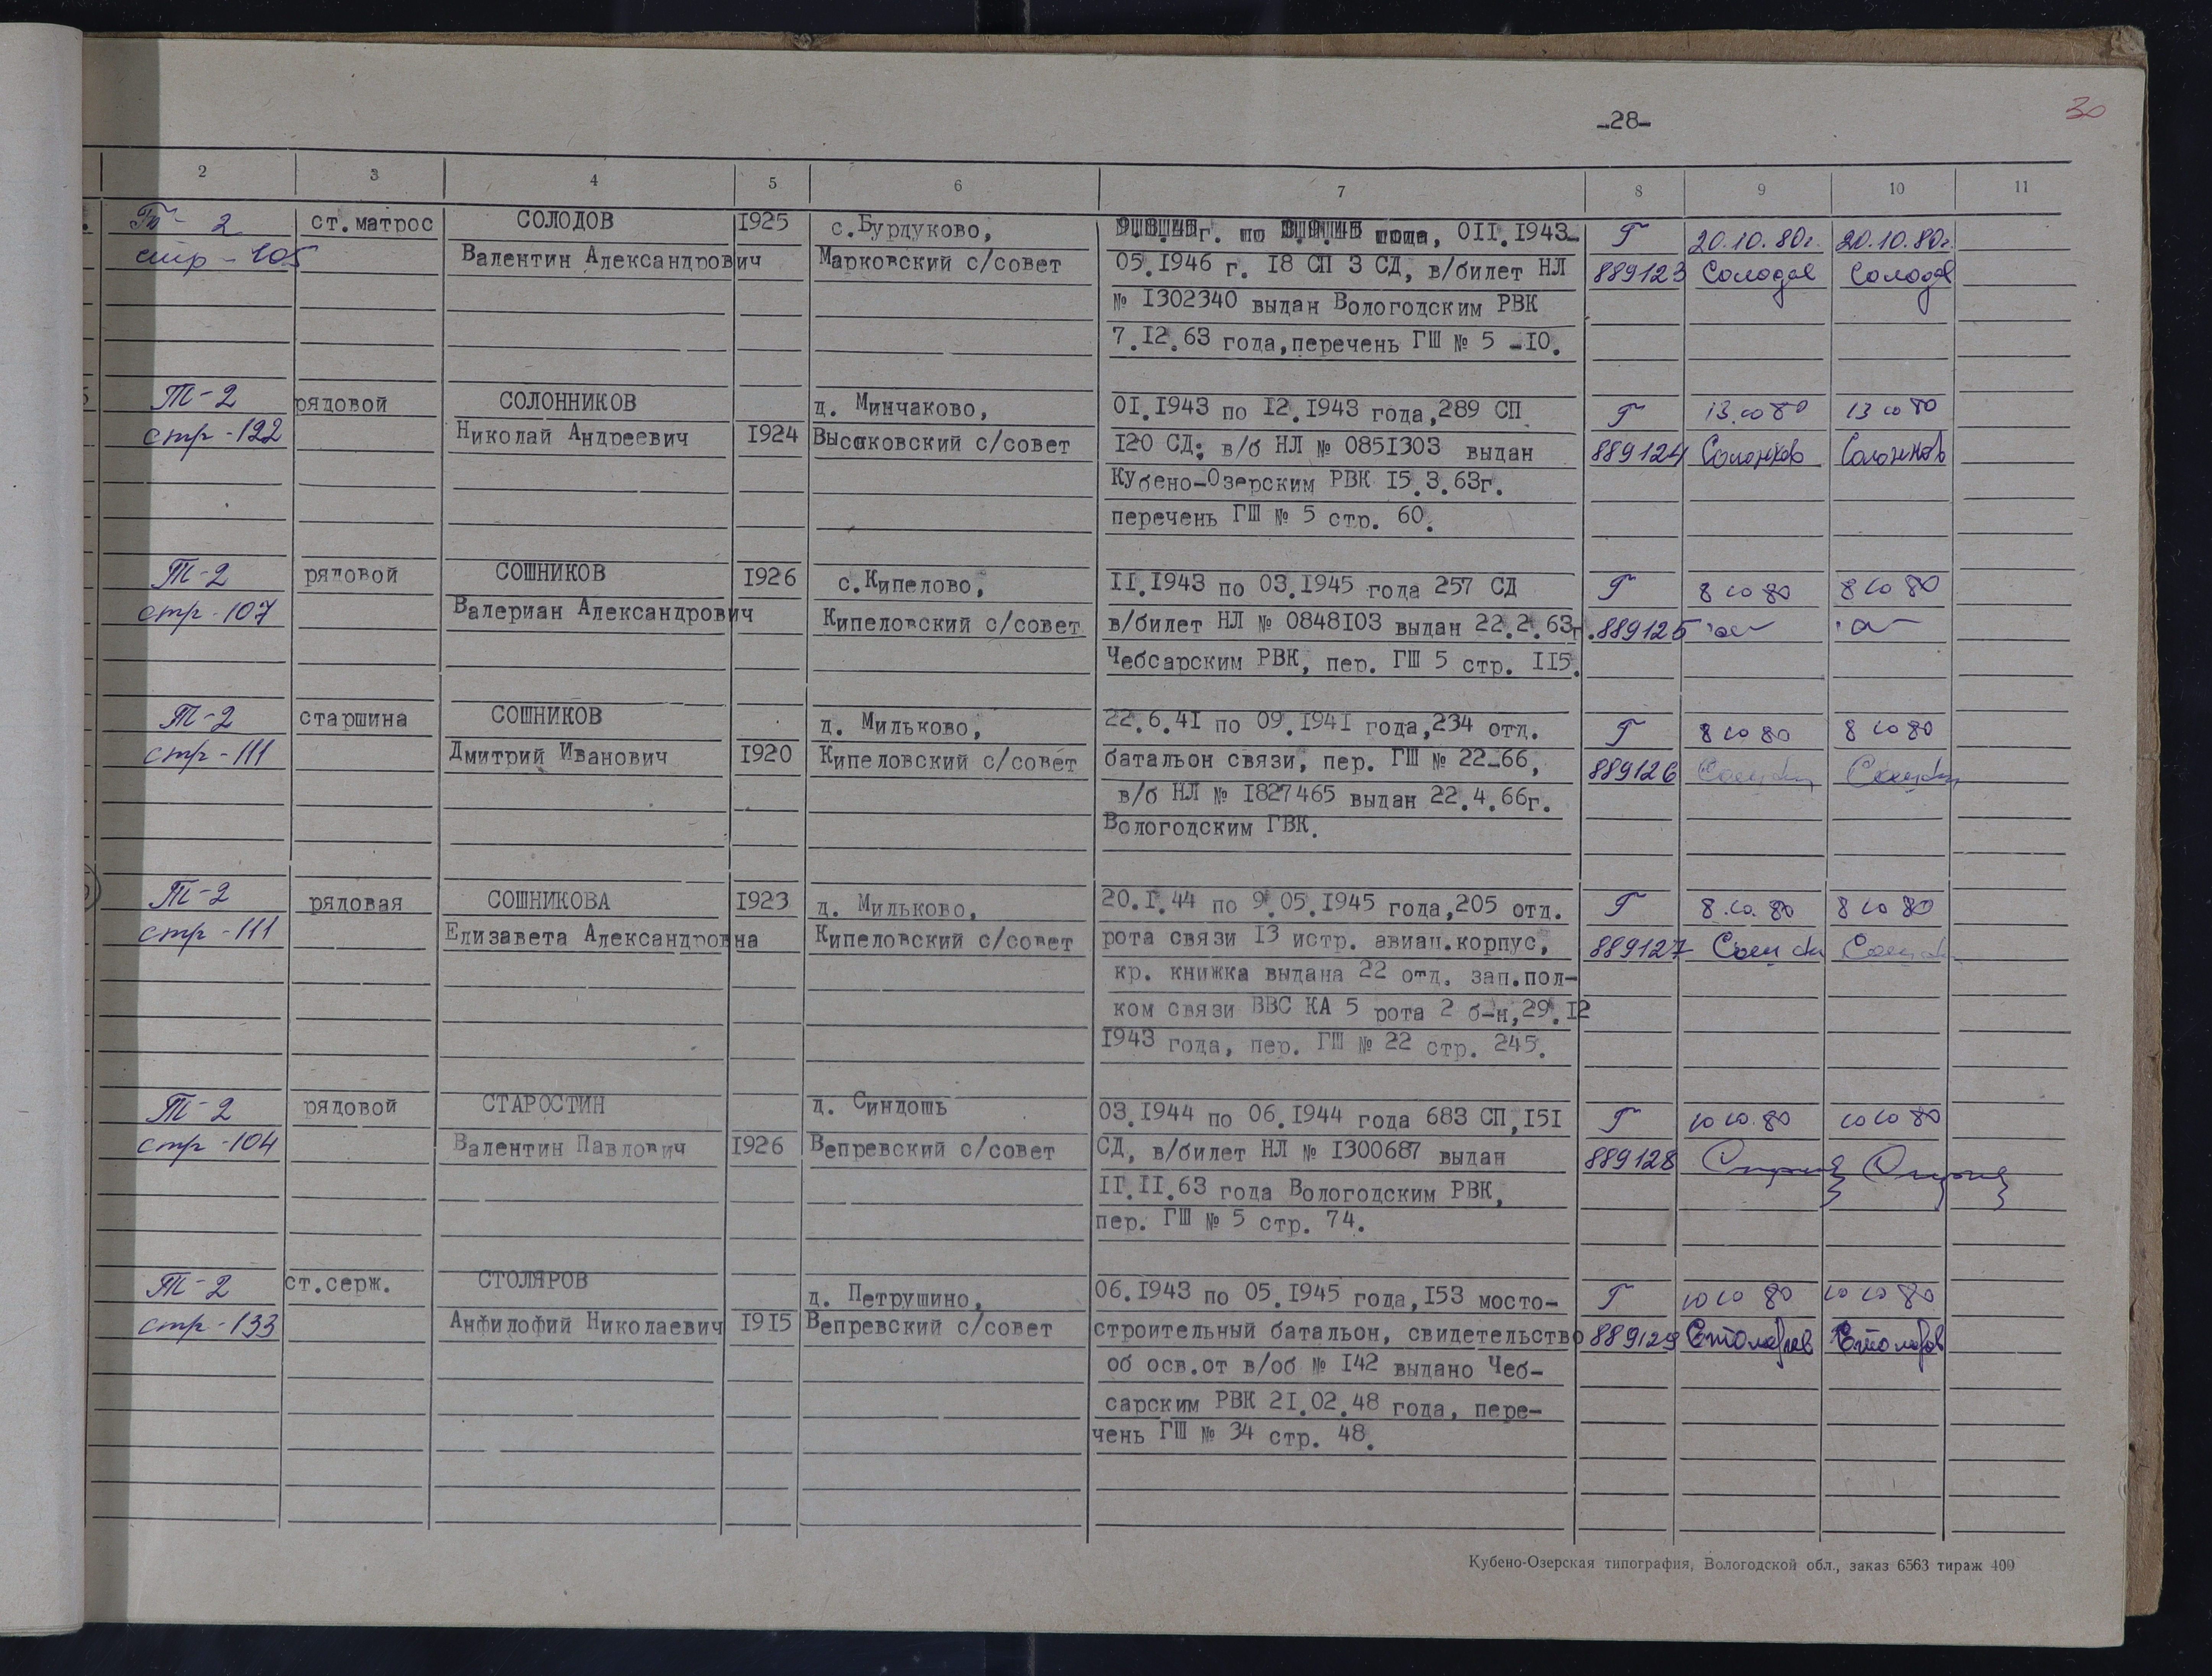 -28-
30
2 3 4 5 6 7 8 9 10 11
Т-2 ст.матрос СОЛОДОВ 1925 с.Бурдуково, г. по года, 0II.I943-
стр-105 Валентин Александрович Марковский с/совет 05.I946 г. I8 СП 3 СД, в/билет НЛ
Г 20.10.80г. 20.10.80г.
889123 Солодов Солодов
№ I302340 выдан Вологодским РВК
7.I2.63 года,перечень ГШ № 5 -I0.
Т-2 рядовой СОЛОННИКОВ д. Минчаково, 0I.I943 по I2.I943 года,289 СП Г 13.10 80 13 10 80
стр-122 Николай Андреевич I924 Высоковский с/совет I20 СД; в/б НЛ № 085I303 выдан 889124 Солонков Солонков
Кубено-Озерским РВК I5.3.63г.
перечень ГШ № 5 стр. 60.
Т-2 рядовой СОШНИКОВ I926 с.Кипелово, II.I943 по 03.I945 года 257 СД Г 8 10 80 8 10 80
стр-107 Валериан Александрович Кипеловский с/совет в/билет НЛ № 0848I03 выдан 22.2.63г. 889125
Чебсарским РВК, пер. ГШ 5 стр. II5.
Т-2 старшина СОШНИКОВ д. Мильково, 22.6.4I по 09.I94I года,234 отд. Г 8 10 80 8 10 80
стр-111 Дмитрий Иванович I920 Кипеловский с/совет батальон связи, пер. ГШ № 22-66, 889126
в/б НЛ № I827465 выдан 22.4.66г.
Вологодским ГВК.
Т-2 рядовая СОШНИКОВА I923 д. Мильково, 20.I.44 по 9.05.I945 года,205 отд. Г 8.10.80 8 10 80
стр-111 Елизавета Александровна Кипеловский с/совет рота связи I3 истр. авиац.корпус, 889127
кр. книжка выдана 22 отд. зап.пол-
ком связи ВВС КА 5 рота 2 б-н,29.I2
I943 года, пер. ГШ № 22 стр. 245.
Т-2 рядовой СТАРОСТИН д. Синдошь 03.I944 по 06.I944 года 683 СП,I5I Г 10 10.80 10 10 80
стр-104 Валентин Павлович I926 Вепревский с/совет СД, в/билет НЛ № I300687 выдан 889128
II.II.63 года Вологодским РВК,
пер. ГШ № 5 стр. 74.
Т-2 ст.серж. СТОЛЯРОВ д. Петрушино, 06.I943 по 05.I945 года,I53 мосто- Г 10 10 80 10 10 80
стр-133 Анфилофий Николаевич I9I5 Вепревский с/совет строительный батальон, свидетельство 889129 Столяров Столяров
об осв.от в/об № I42 выдано Чеб-
сарским РВК 2I.02.48 года, пере-
чень ГШ № 34 стр. 48.
Кубено-Озерская типография, Вологодской обл., заказ 6563 тираж 400